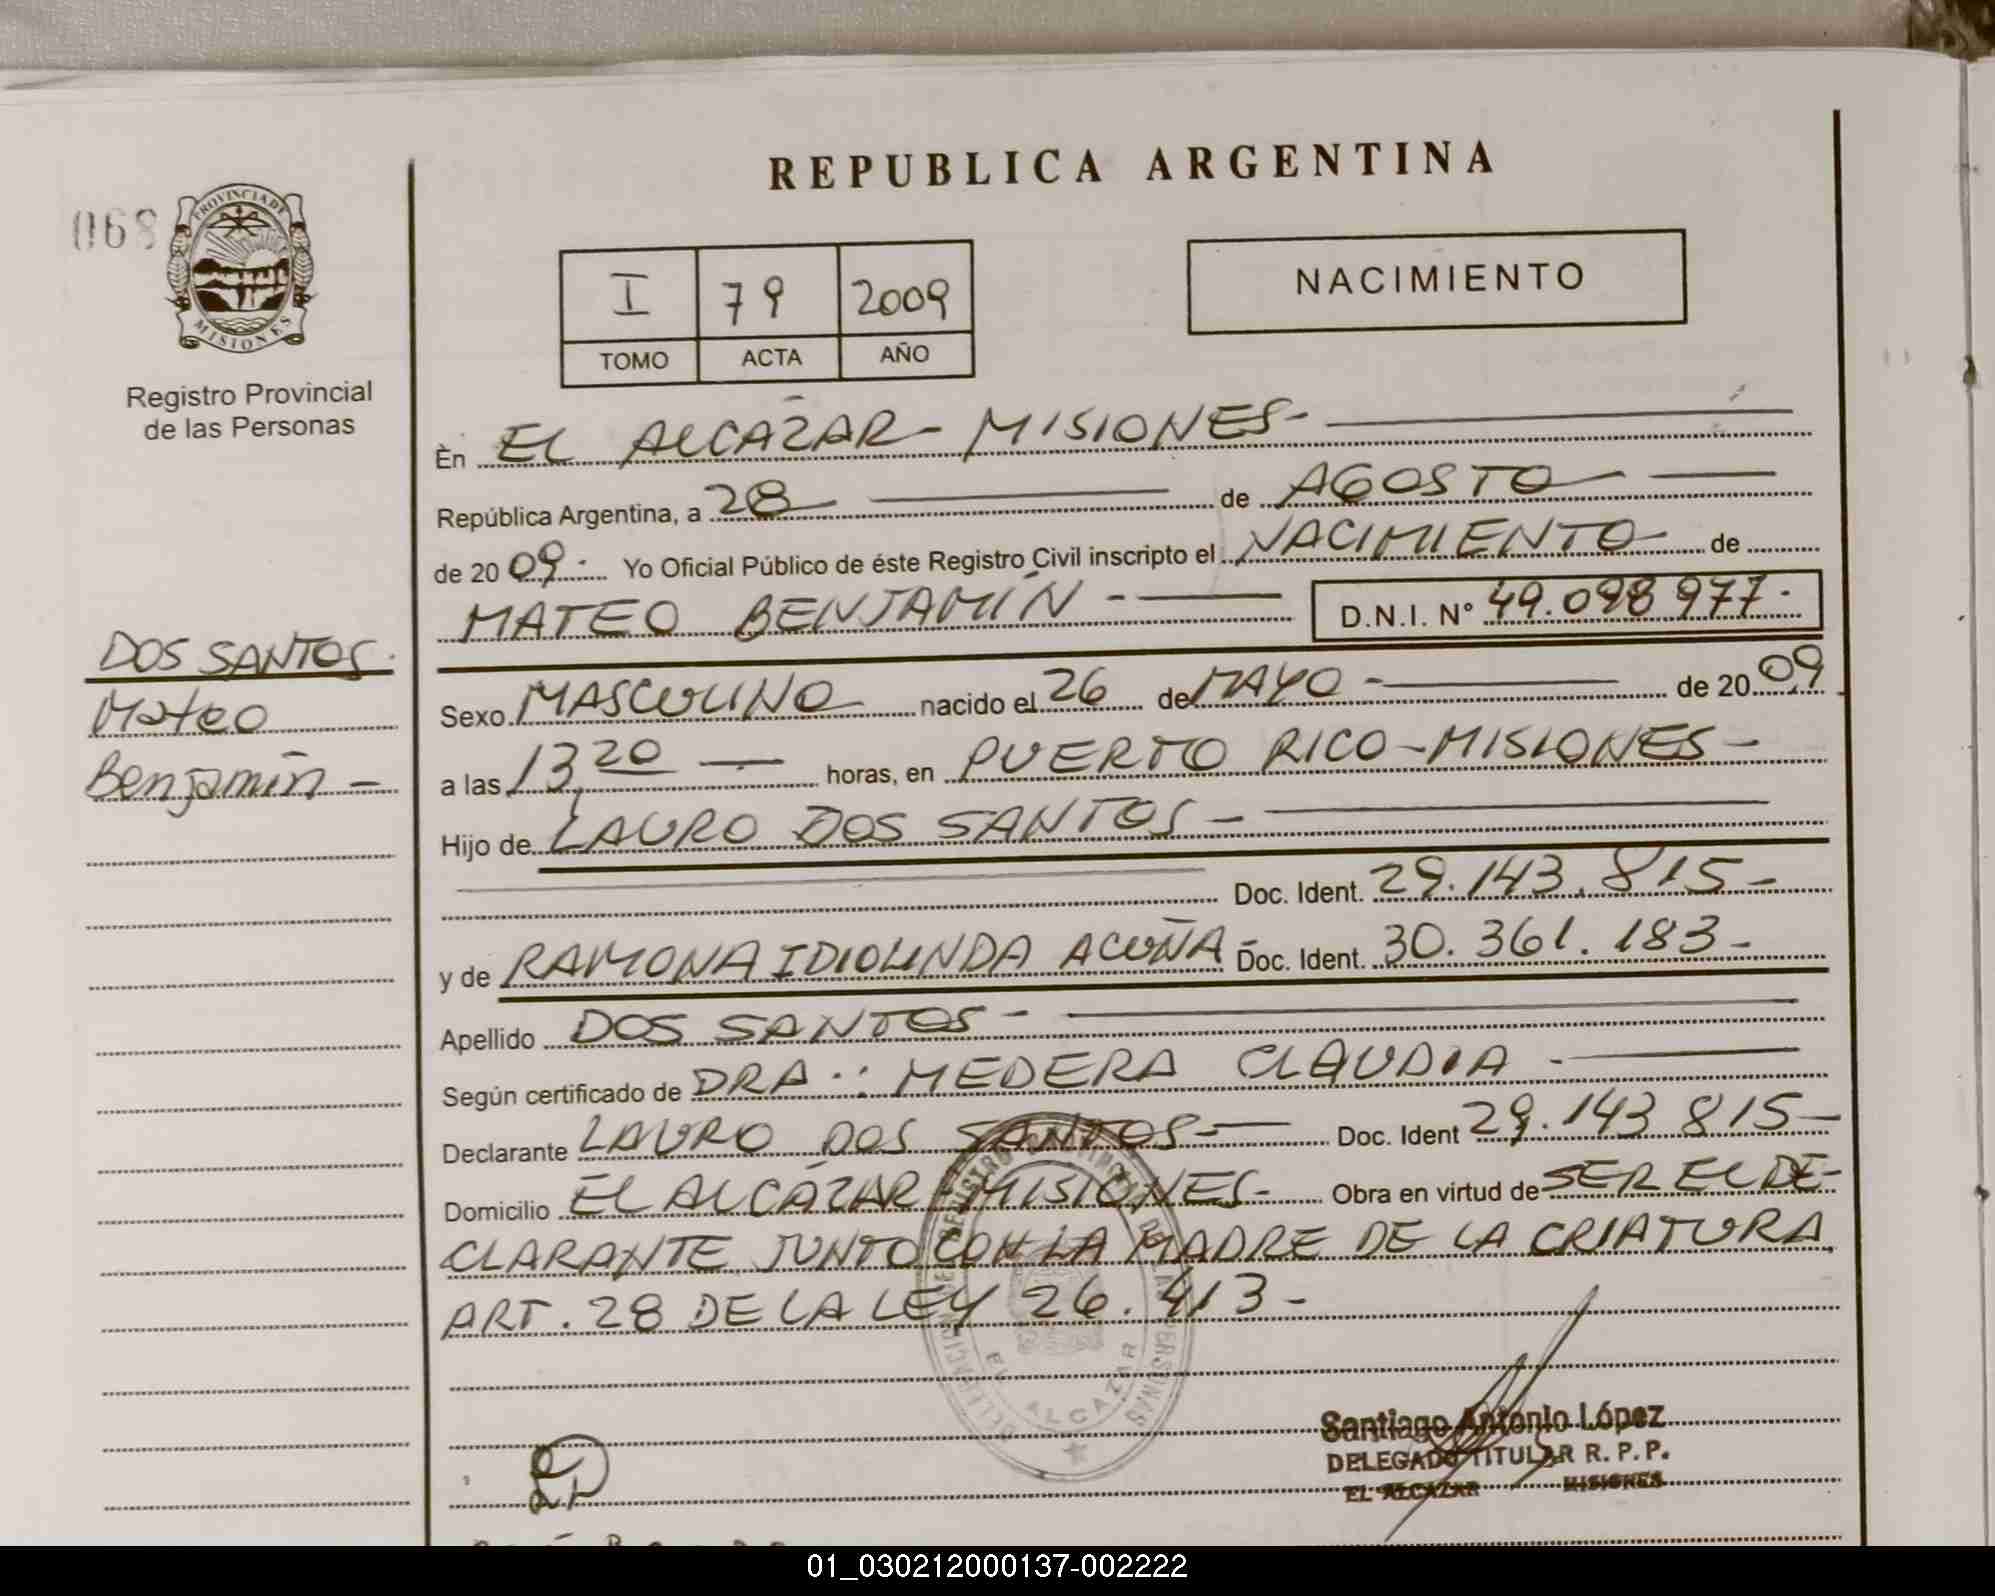 REPUBLICA ARGENTINA
068
PROVINCIA DE
MISIONES
Registro Provincial
de las Personas
I 79 2009
TOMO ACTA AÑO
NACIMIENTO
En EL ALCÁZAR - MISIONES -
República Argentina, a 28 de AGOSTO
de 2009. Yo Oficial Público de éste Registro Civil inscripto el NACIMIENTO de
MATEO BENJAMÍN - D.N.I. N° 49.098 977.
DOS SANTOS.
Mateo
Benjamín -
Sexo MASCULINO nacido el 26 de MAYO - de 2009
a las 13,20 — horas, en PUERTO RICO - MISIONES -
Hijo de LAURO DOS SANTOS -
Doc. Ident. 29.143.815 -
y de RAMONA IDIOLINDA ACUÑA Doc. Ident. 30.361.183 -
Apellido DOS SANTOS -
Según certificado de DRA.: MEDERA CLAUDIA -
Declarante LAURO DOS SANTOS - Doc. Ident 29.143 815 -
Domicilio EL ALCÁZAR MISIONES - Obra en virtud de SER EL DE-
CLARANTE JUNTO CON LA MADRE DE LA CRIATURA,
ART. 28 DE LA LEY 26.413 -
EL ALCAZAR
Santiago Antonio López
DELEGADO TITULAR R. P. P.
EL ALCAZAR MISIONES
01_030212000137-002222